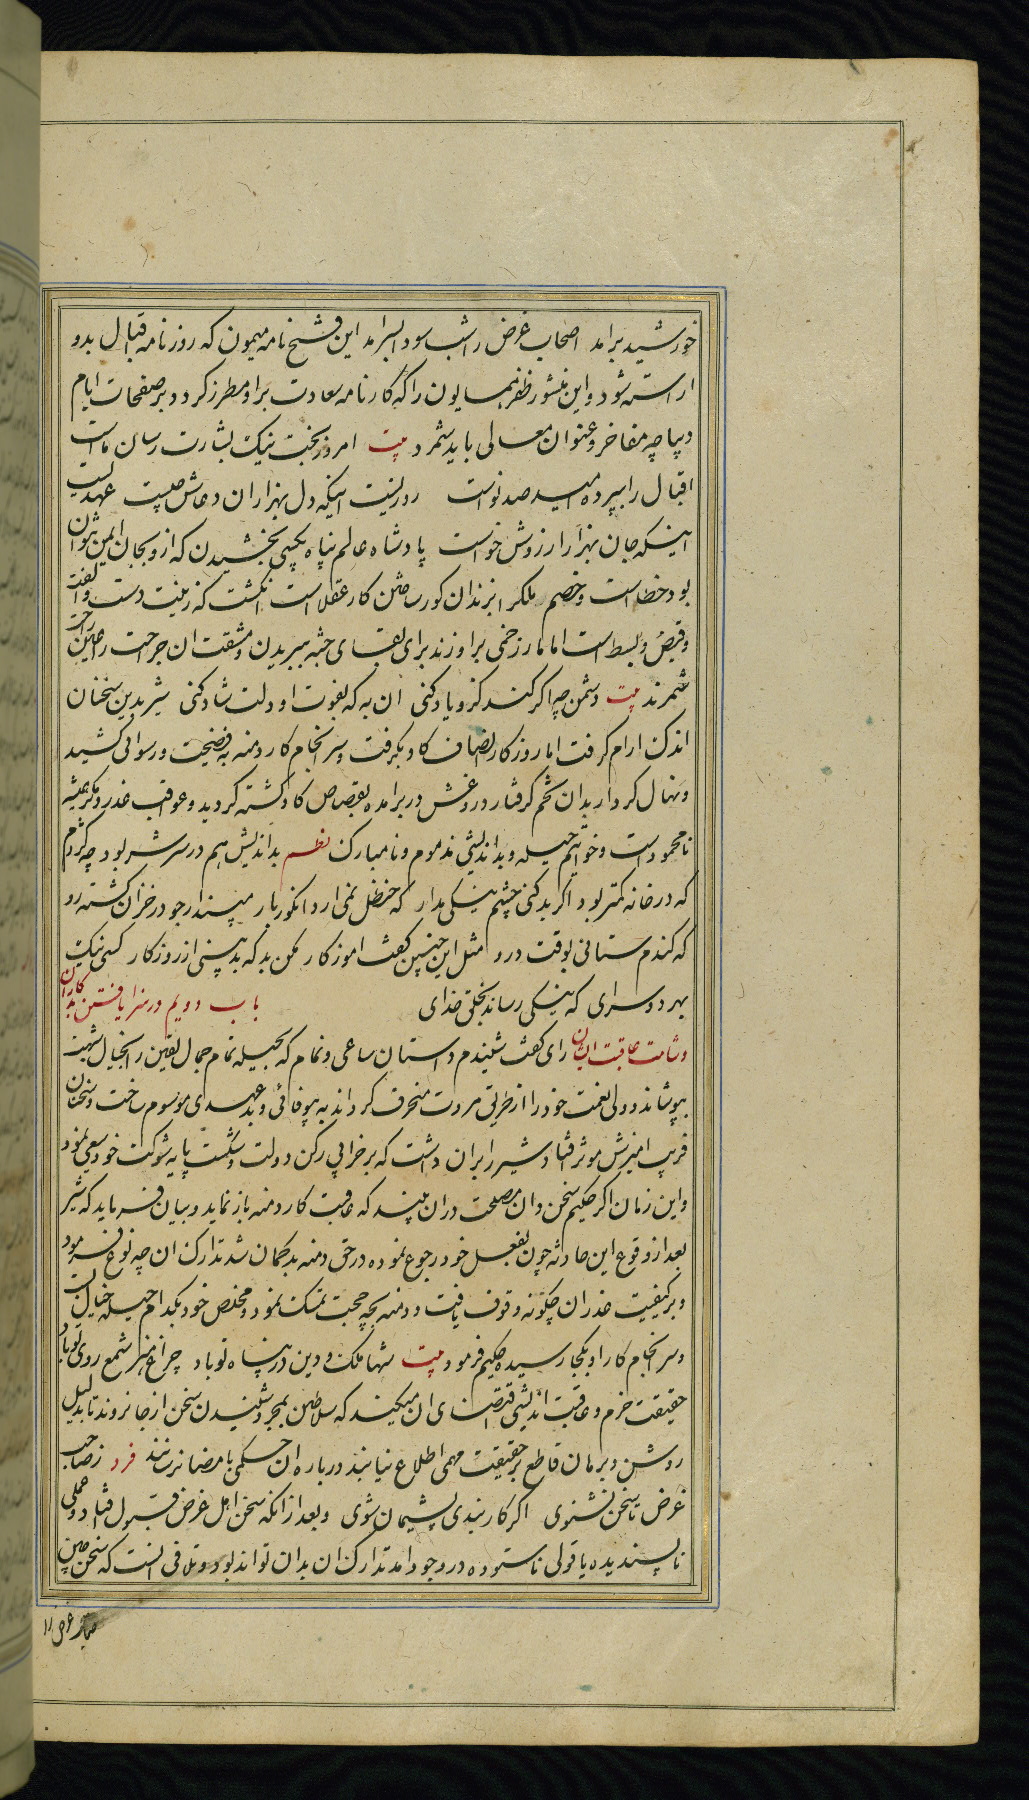 خورشید برامد اصحاب غرض را شب سودا بسر امد این فتح نامه میمون که روزنامه اقبال بدو
اراسته شود و این منشور ظفر همایون را که کارنامه سعادت برا و مطرز کردد بر صفحات ایام
دیباچه مفاخر و عنوان معالی باید شمرد بیت امروز بخت نیک بشارت رسان ماست
اقبال را بپرده امید صد نواست روزیست اینکه دل بهزاران دعاش جست عهدیست
اینکه جان بهزار ارزوش خواست پادشاه عالم پناه بکسی بخشیدن که ازو بجان ایمن نتوان
بود خطاست و خصم ملک را بزندان کور ساختن کار عقلاست انکشت که زینت دست و الت
و قبض و بسط است اما مار زخمی برا و زند برای بقای جثه ببریدن و مشقت ان جراحت را عین راحت
شمرند بیت دشمن چه اکر کند کزو یاد کنی ان به که بفوت او دلت شاد کنی شیر بدین سخنان
اندک ارام کرفت اما روزکار انصاف کاو بکرفت و سر انجام کار دمنه به فضیحت و رسوائی کشید
و نهال کردار بدان تخم کرفتار دروغش در برامده بقصاص کاو کشته کردید و عواقب غدر و مکر همیشه
نامحمود است و خواتیم حیله و بداندیشی مذموم و نامبارک نظم بداندیش هم در سر شر بود چو کژدم
که در خانه کمتر بود اکر بد کنی چشم نیکی مدار که حنظل نمی ارد انکور بار مپندار جو در خزان کشته رو
که کندم ستانی بوقت درو مثل این چنین کفت اموزکار مکن بد که بد بینی از روزکار کسی نیک
بهر دو سرای که نیکی رساند بخلق خدای باب دویم در سزا یافتن بدکاران
و شامت عاقبت ایشان رای کفت شنیدم داستان ساعی و نمام که بحیله تمام جمال یقین را بخیال شبهت
بپوشاند و ولی نعمت خود را از طریق مروت منحرف کردانند به بیوفائی و بدعهدی موسوم ساخت و سخنان
فریب امیزش موثر افتاد شیر را بران داشت که بر خرابی رکن دولت و شکست پایه شوکت خود سعی نمود
و این زمان اکر حکیم سخن دان مصلحت دران بیند که عاقبت کار دمنه باز نماید و بیان فرماید که شیر
بعد از وقوع این حادثه چون بفعل خود رجوع نموده در حق دمنه بدکمان شد تدارک ان چه نوع فرمود
و بر کیفیت غدر ان چکونه وقوف یافت و دمنه بچه حجت تمسک نمود و مخلص خود بکدام حیله خیال بست
و سر انجام کار او بکجا رسید حکیم فرمود بیت شها ملک و دین در پناه تو باد چراغ هنر شمع روی تو باد
حقیقت حزم و عاقبت اندیشی اقتضای ان میکند که سلاطین بمجرد شنیدن سخن از جا نروند تا بدلیل
روشن و برهان قاطع بر حقیقت مهمی اطلاع نیابند درباره ان حکمی بامضا نرسانند فرد ز صاحب
غرض تا سخن نشنوی اکر کار بندی پشیمان شوی و بعد از انکه سخن اهل غرض قبول افتاد و عملی
ناپسندیده یا قولی ناستوده در وجود امد تدارک ان بدان تواند بود و تلافی انست که سخن چین